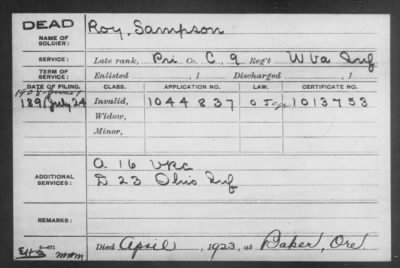 DEAD
NAME OF SOLDIER: Roy, Sampson
SERVICE: Late rank, Pri Co. C, 9 Reg't W Va Inf
TERM OF SERVICE: Enlisted , 1 Discharged , 1
DATE OF FILING. CLASS. APPLICATION NO. LAW. CERTIFICATE NO.
1891 July 24 Invalid, 1044837 1013753
Widow,
Minor,
ADDITIONAL SERVICES: A 16 VRC
D 23 Ohio Inf
REMARKS:
Died April , 1923, at Baker, Ore